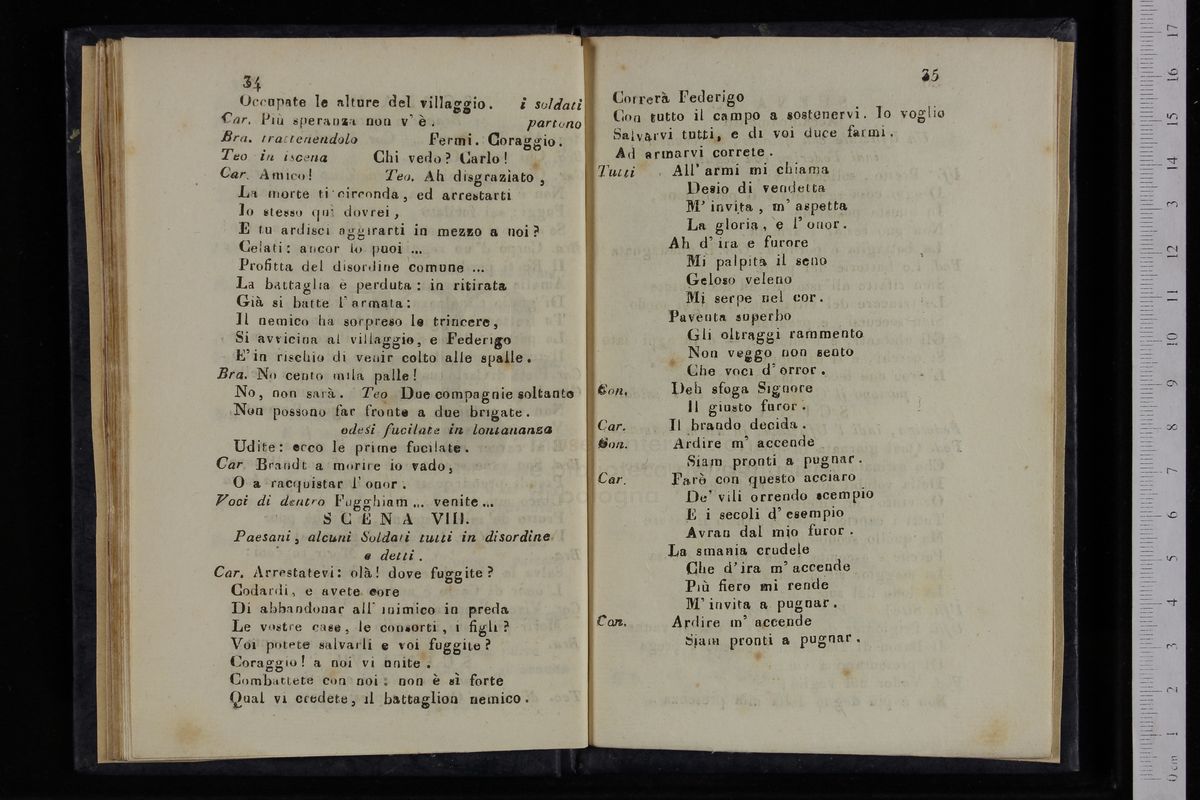 34
Occupate le alture del villaggio. i soldati
Car. Più speranza non v' è. partono
Bra. trattenendolo Fermi. Coraggio.
Teo in iscena Chi vedo? Carlo!
Car. Amico! Teo. Ah disgraziato,
La morte ti circonda, ed arrestarti
Io stesso quì dovrei,
E tu ardisci aggirarti in mezzo a noi?
Celati: ancor lo puoi ...
Profitta del disordine comune ...
La battaglia è perduta: in ritirata
Già si batte l'armata:
Il nemico ha sorpreso le trincere,
Si avvicina al villaggio, e Federigo
E' in rischio di venir colto alle spalle.
Bra. No cento mila palle!
No, non sarà. Teo Due compagnie soltanto
Non possono far fronte a due brigate.
odesi fucilate in lontananza
Udite: ecco le prime fucilate.
Car Brandt a morire io vado,
O a racquistar l'onor.
Voci di dentro Fugghiam ... venite ...
SCENA VIII.
Paesani, alcuni Soldati tutti in disordine
e detti.
Car. Arrestatevi: olà! dove fuggite?
Codardi, e avete core
Di abbandonar all' inimico in preda
Le vostre case, le consorti, i figli?
Voi potete salvarli e voi fuggite?
Coraggio! a noi vi unite.
Combattete con noi: non è sì forte
Qual vi credete, il battaglion nemico.
35
Correrà Federigo
Con tutto il campo a sostenervi. Io voglio
Salvarvi tutti, e di voi duce farmi.
Ad armarvi correte.
Tutti All' armi mi chiama
Desio di vendetta
M' invita, m' aspetta
La gloria, e l' onor.
Ah d' ira e furore
Mi palpita il seno
Geloso veleno
Mi serpe nel cor.
Paventa superbo
Gli oltraggi rammento
Non veggo non sento
Che voci d' orror.
Con. Deh sfoga Signore
Il giusto furor.
Car. Il brando decida.
Con. Ardire m' accende
Siam pronti a pugnar.
Car. Farò con questo acciaro
De' vili orrendo scempio
E i secoli d' esempio
Avran dal mio furor.
La smania crudele
Che d' ira m' accende
Più fiero mi rende
M' invita a pugnar.
Con. Ardire m' accende
Siam pronti a pugnar.
bologna
0 cm 1 2 3 4 5 6 7 8 9 10 11 12 13 14 15 16 17